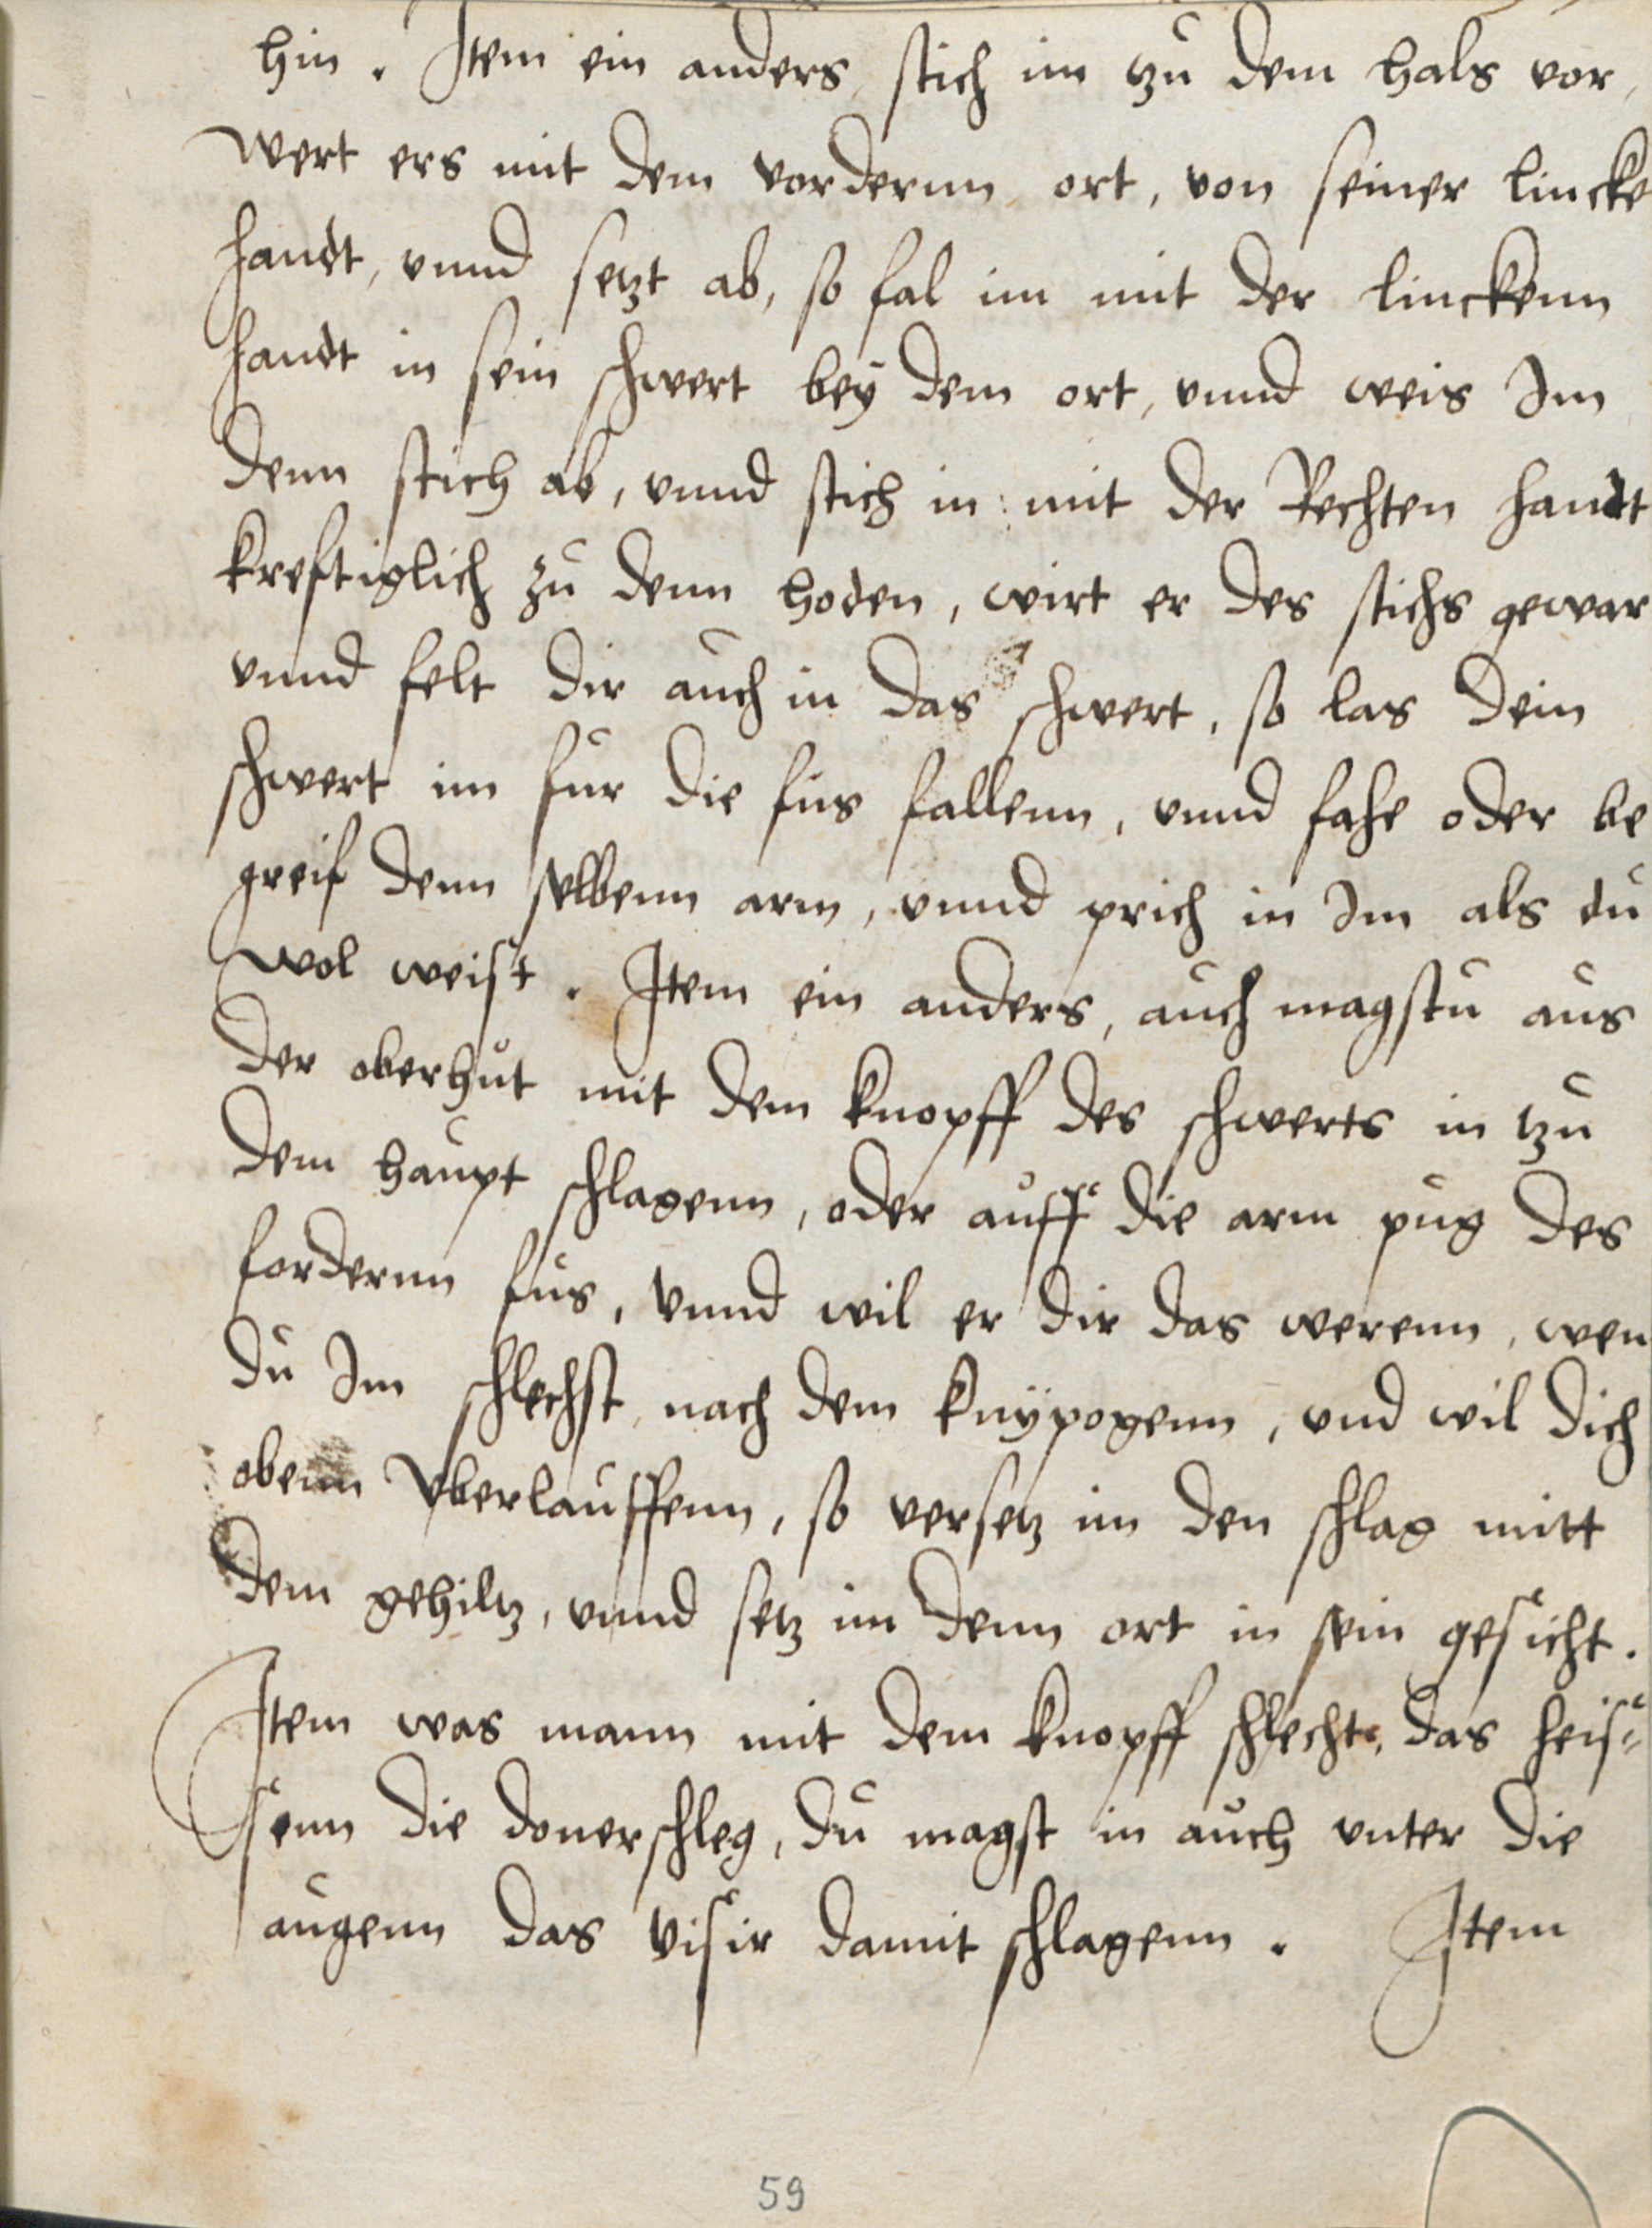 hin . Item ein anders, stich im tzu dem hals vor,
wert ers mit dem vordernn ort, von seiner lincke
handt, vnnd setzt ab, so fal im mit der linckenn
handt in sein schwert bey dem ort, vnnd weis Im
denn stich ab, vnnd stich in mit der Rechten handt
kreftiglich zu denn hoden, wirt er des stichs gewar
vnnd felt dir auch in das schwert, so las dein
schwert im fur die fus fallenn, vnnd fahe oder be
greif denn selbenn arm, vnnd prich in Im als du
wol weist . Item ein anders, auch magstu aus
der oberhut mit dem knopff des schwerts in tzu
dem haupt schlagenn, oder auff die arm pug des
fordernn fus, vnnd wil er dir das werenn, wen
du Im schlechst, nach dem knypogenn, vnd wil dich
obenn vberlauffenn, so versetz im den schlag mitt
dem gehiltz, vnnd setz im denn ort in sein gesicht.
Item was mann mit dem knopff schlecht, das heis=
senn die donerschleg, du magst in auch vnter die
augenn das visir damit schlagenn . Item
59